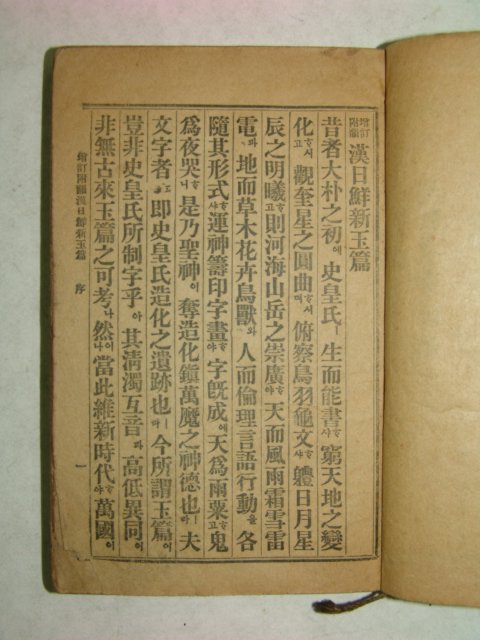 增訂附韻 漢日鮮新玉篇
昔者大朴之初에史皇氏ㅣ生而能書ᄒᆞ샤窮天地之變
化ᄒᆞ시고觀奎星之圓曲ᄒᆞ시며俯察鳥羽龜文ᄒᆞ샤軆日月星
辰之明曦ᄒᆞ고則河海山岳之崇廣ᄒᆞ야天而風雨霜雪雷
電과地而草木花卉鳥獸와人而倫理言語行動을各
隨其形式ᄒᆞ샤運神籌印字畫ᄒᆞ야字旣成에天爲雨粟ᄒᆞ고鬼
爲夜哭ᄒᆞ니是乃聖神이奪造化鎭萬魔之神德也ㅣ라夫
文字者即史皇氏造化之遺跡也ㅣ라今所謂玉篇이
豈非史皇氏所制字乎아其淸濁互音과高低異同이
非無古來玉篇之可考나然이나當此維新時代ᄒᆞ야萬國이
增訂附韻漢日鮮新玉篇 序 一